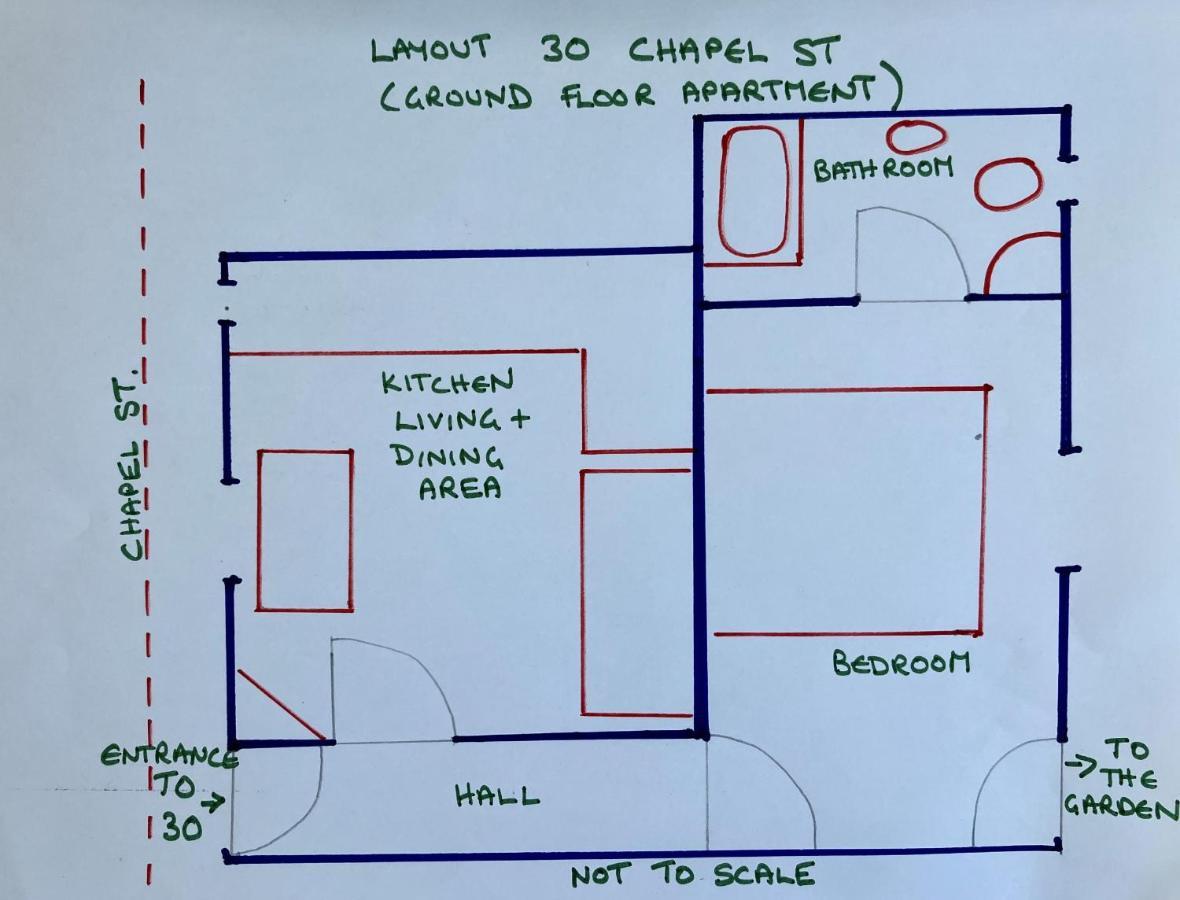 LAYOUT 30 CHAPEL ST
(GROUND FLOOR APARTMENT)
BATHROOM
CHAPEL ST.
KITCHEN
LIVING +
DINING
AREA
BEDROOM
ENTRANCE
TO →
30
HALL
→ TO
THE
GARDEN
NOT TO SCALE